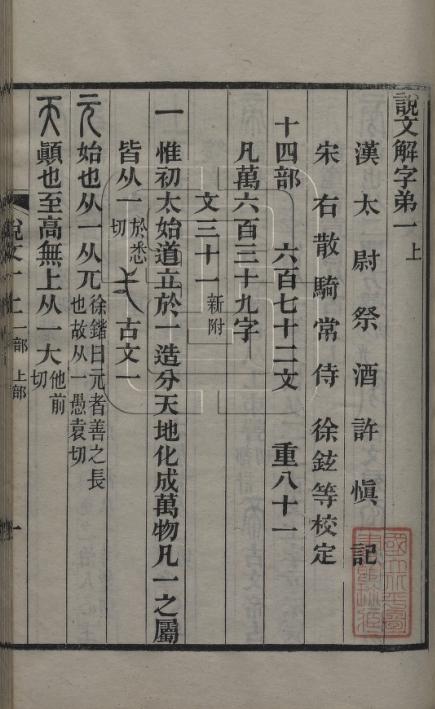 說文解字弟一上
漢太尉祭酒許愼記
宋右散騎常侍徐鉉等校定
十四部 六百七十二文 重八十一
凡萬六百三十九字
文三十一新附
一惟初太始道立於一造分天地化成萬物凡一之屬
皆从一於悉切 古文一
元始也从一从兀徐鍇曰元者善之長也故从一愚袁切
天顚也至高無上从一大他前切
說文一上 一部 上部 一